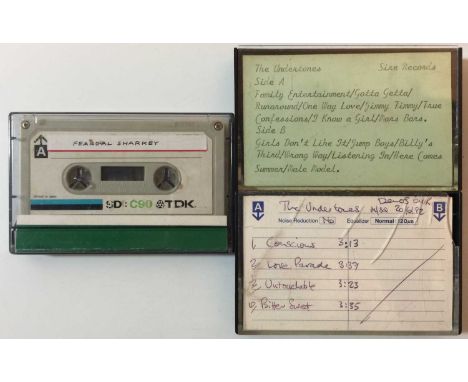 A
FEARGAL SHARKEY
SD C90 TDK
The Undertones Sire Records
Side A
Family Entertainment/Gotta Getta/
Runaround/One Way Love/Jimmy Jimmy/True
Confessions/I Know a Girl/Mars Bars.
Side B
Girls Don't Like It/Jump Boys/Billy's
Third/Wrong Way/Listening In/Here Comes
Summer/Male Model.
A The Undertones Demos B
Noise Reduction No Equalizer Normal 120us
1. Conscious 3:13
2. Love Parade 3:37
3. Untouchable 3:23
4. Bitter Sweet 3:35